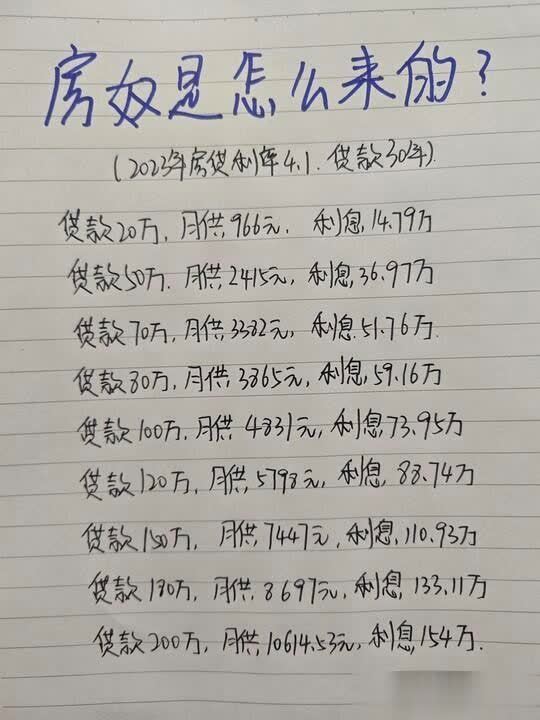 房奴是怎么来的?
(2023年房贷利率4.1.贷款30年)
贷款20万,月供,966元.利息,14.79万
贷款50万.月供,2415元,利息,36.97万
贷款70万,月供,3382元,利息,51.76万.
贷款80万,月供,3865元,利息,59.16万
贷款100万,月供,4831元,利息,73.95万
贷款120万,月供,5798元,利息,88.74万
贷款150万,月供,7447元,利息,110.93万
贷款180万,月供,8697元,利息,133.11万
贷款200万,月供,10614.53元,利息,154万.